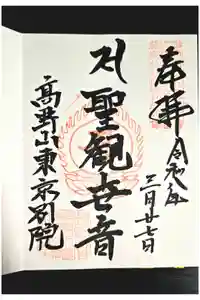 奉拜 令和
三月廿七日
聖觀世音
高野山東京別院